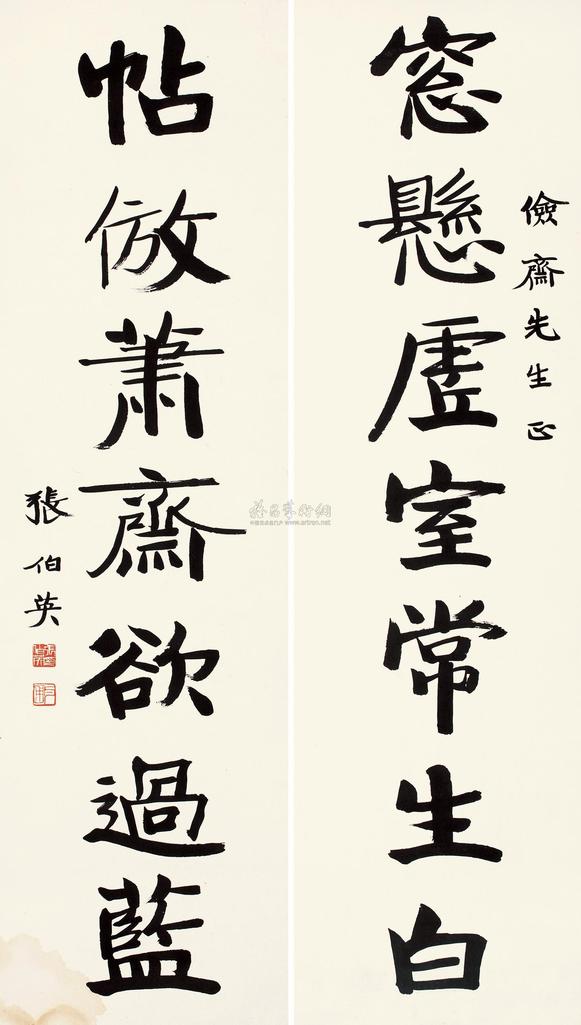 儉齋先生正
窓懸虛室常生白
帖倣蕭齋欲過藍
張伯英
www.artron.net